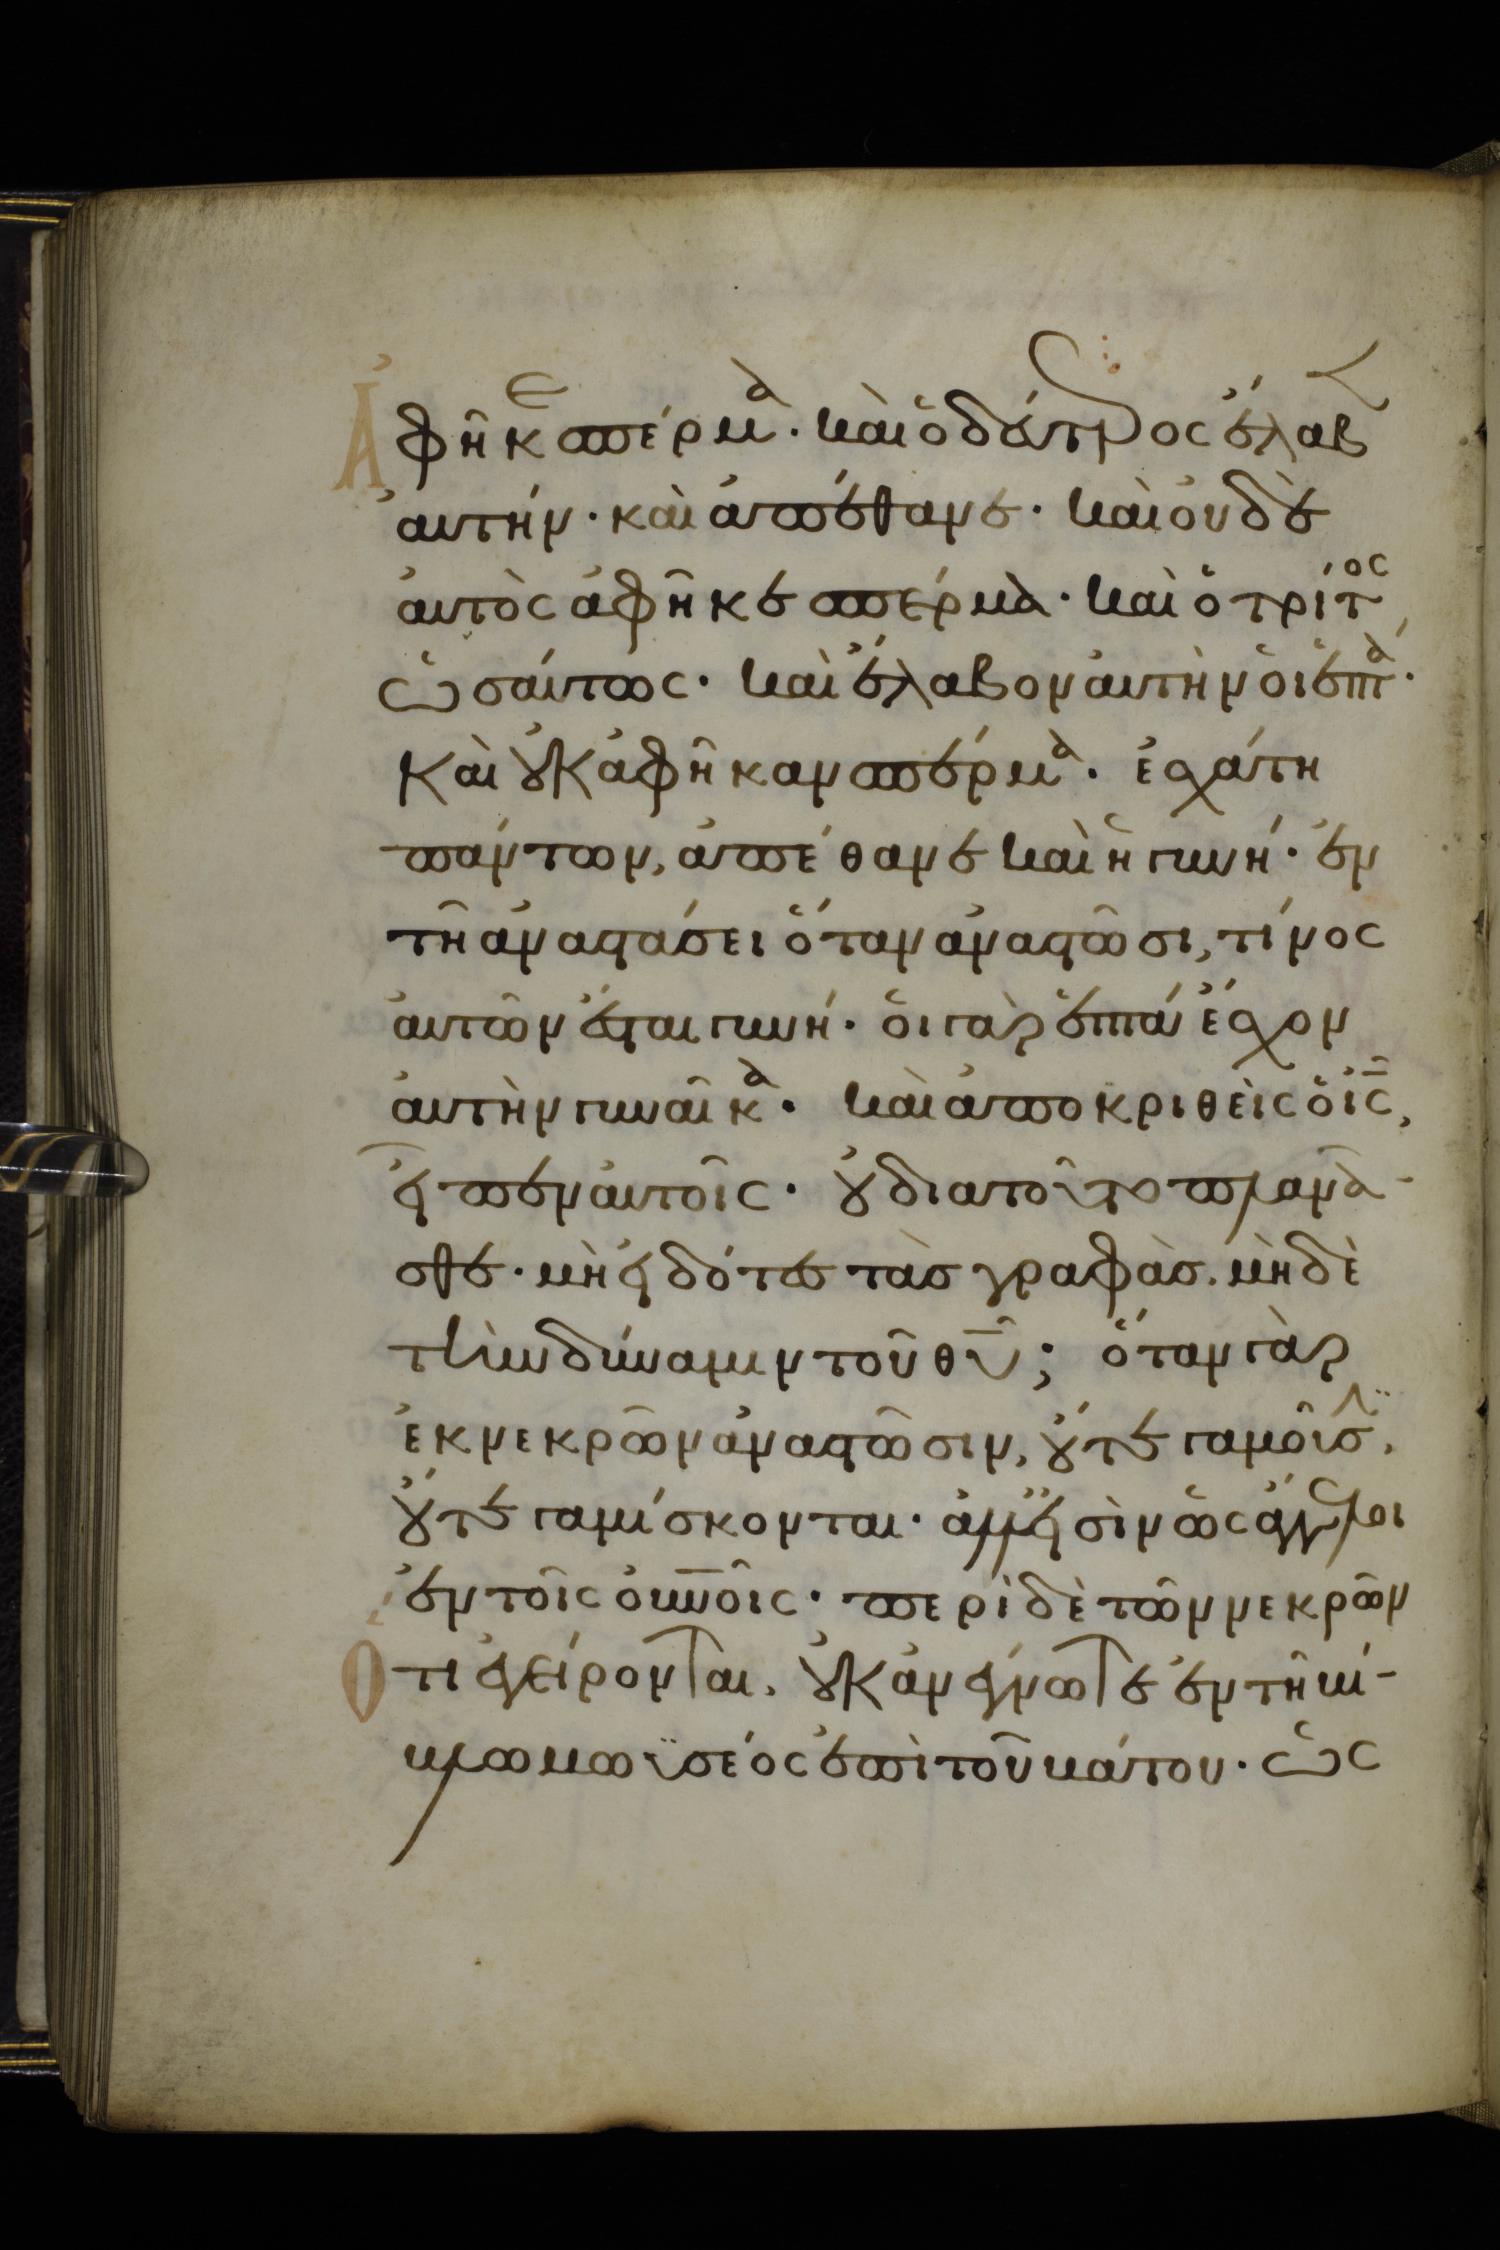 Ἀφῆκε σπέρμα· καὶ ὁ δεύτερος ἔλαβεν
ἀυτήν· καὶ ἀπέθανε· καὶ ὀυδὲ
ἀυτὸς ἀφῆκε σπέρμὰ· καὶ ὁ τρίτος
ὡσαύτως· καὶ ἔλαβον ἀυτὴν ὁι ἑπτὰ·
Καὶ ὀυκ ἀφῆκαν σπέρμα· ἐσχάτη
πάντων, ἀπέθανε καὶ ἡ γυνή· ἐν
τῆ ἀναστάσει ὅταν ἀναστῶσι, τίνος
ἀυτῶν ἔσται γυνή· ὁι γὰρ ἑπτά ἔσχον
ἀυτὴν γυναῖκα· καὶ ἀποκριθεὶς ὁ ις̅,
εἶπεν ἀυτοῖς· ὀυ διατοῦτο πλανᾶ
σθε· μὴ ειδότες τὰσ γραφὰσ. μὴδὲ
τὴν δύναμιν τοῦ θυ̅; ὅταν γὰρ
ἐκ νεκρῶν ἀναστῶσιν, ὄυτε γαμοῦσιν,
ὄυτε γαμίσκονται· ἀλλ εισὶν ὡς ἄγγελοι
ἐν τοῖς ὀυνοῖς· περὶ δὲ τῶν νεκρῶν
Ὅτι εγείρονται, ὀυκ ἀνέγνωτε ἐν τῆ βί
βλω μωϋσέος ἐπὶ τοῦ βάτου· ὡς